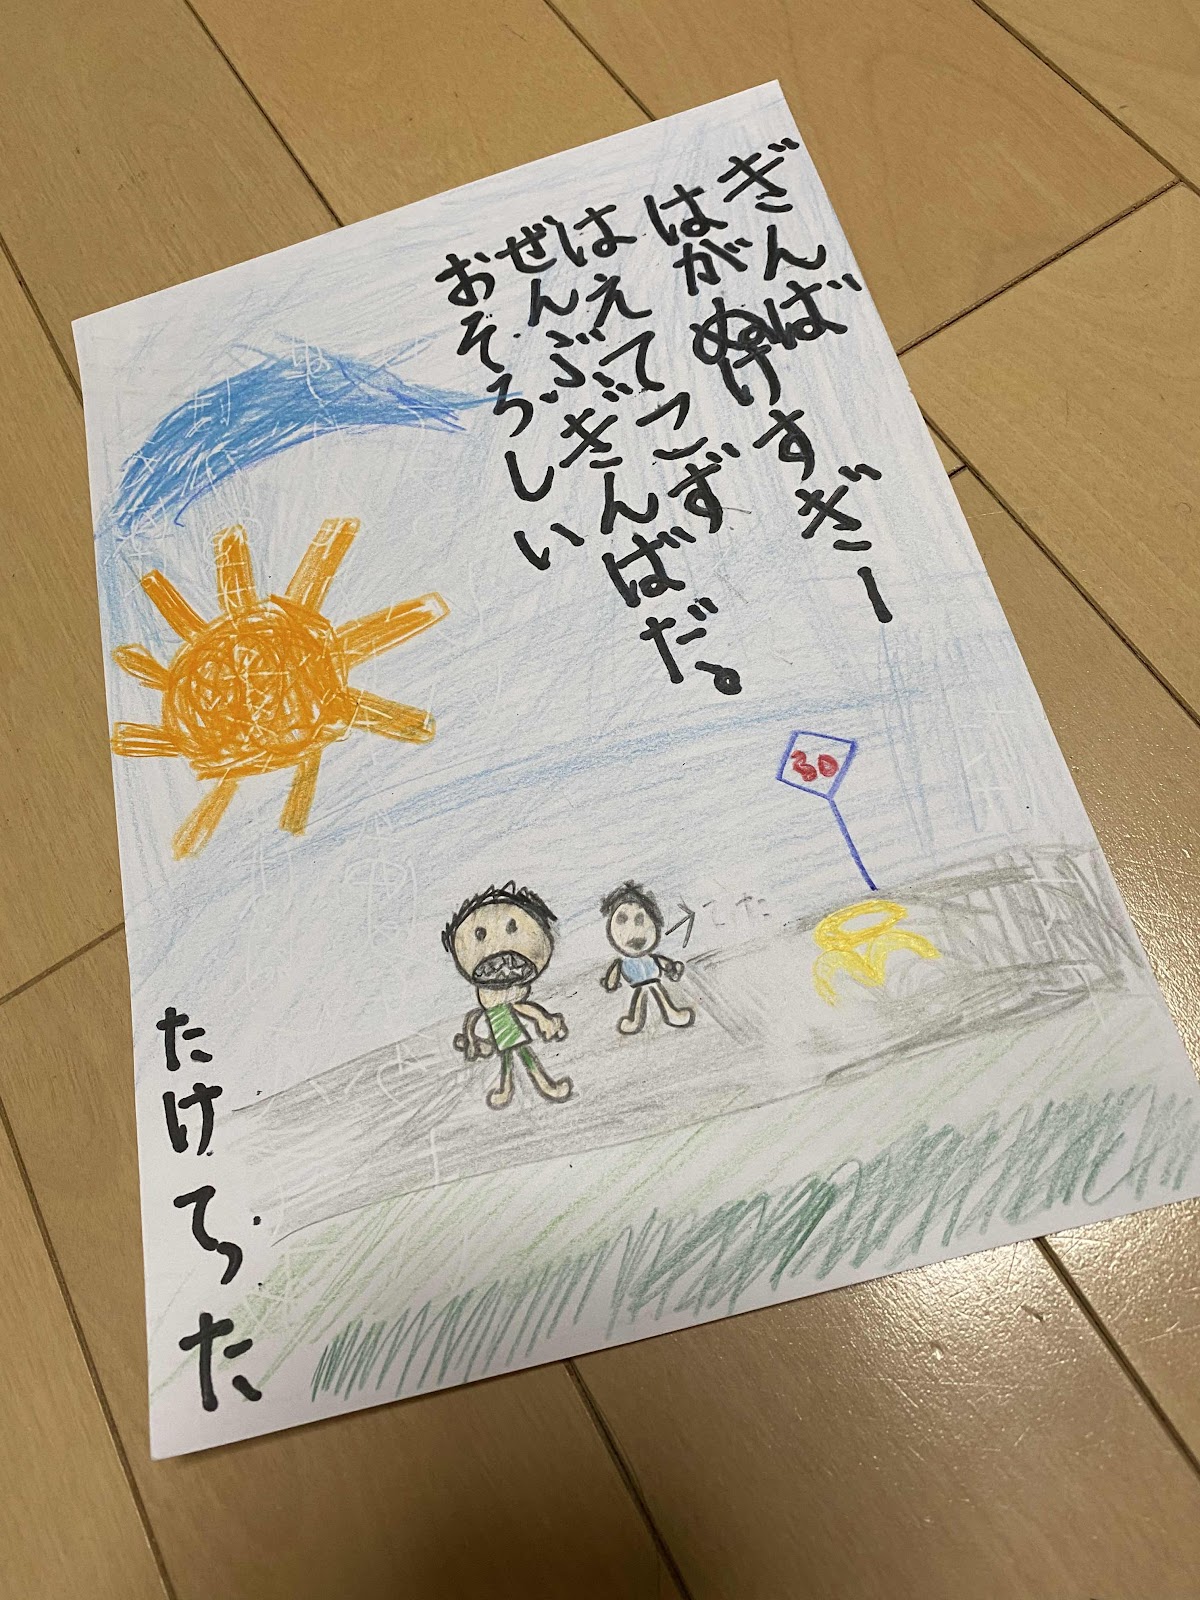 ぎんば
はがぬけすぎー
はえてこず
ぜんぶぎんばだ。
おそろしい
30
たけてった